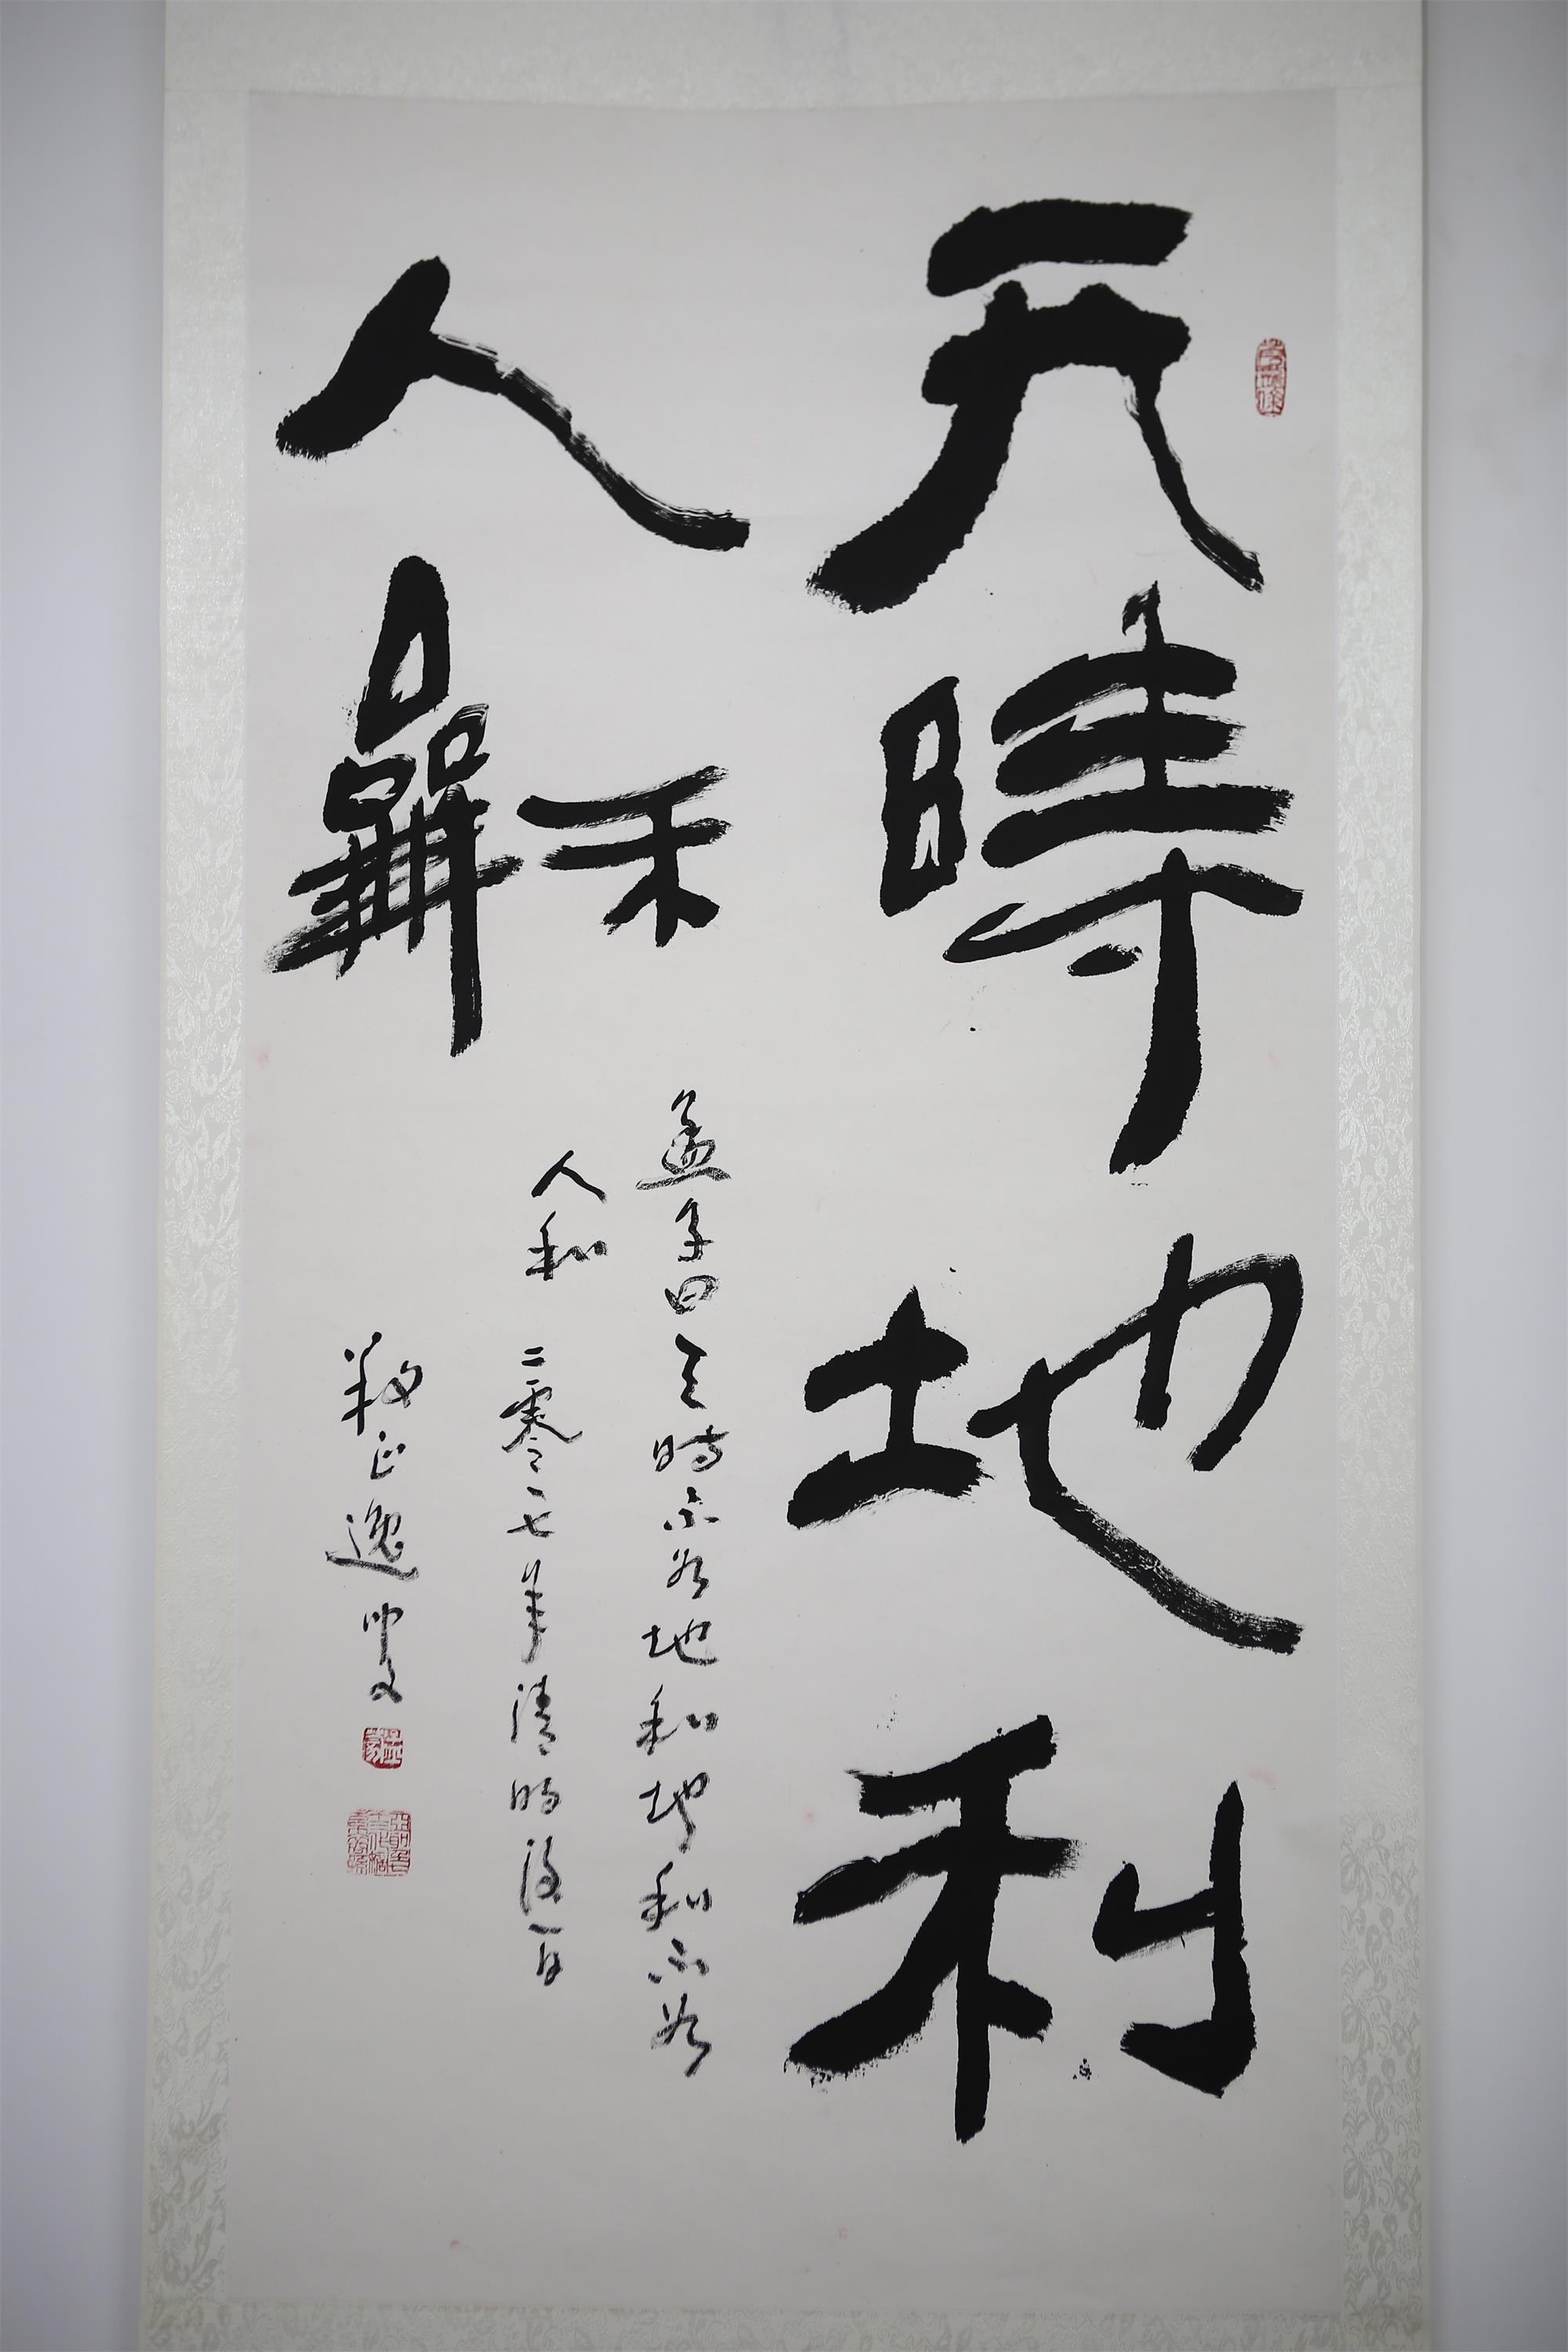 天時地利
人龢
孟子曰天時不如地利地利不如
人和 二零一七年清明後一日
敬正逸叟